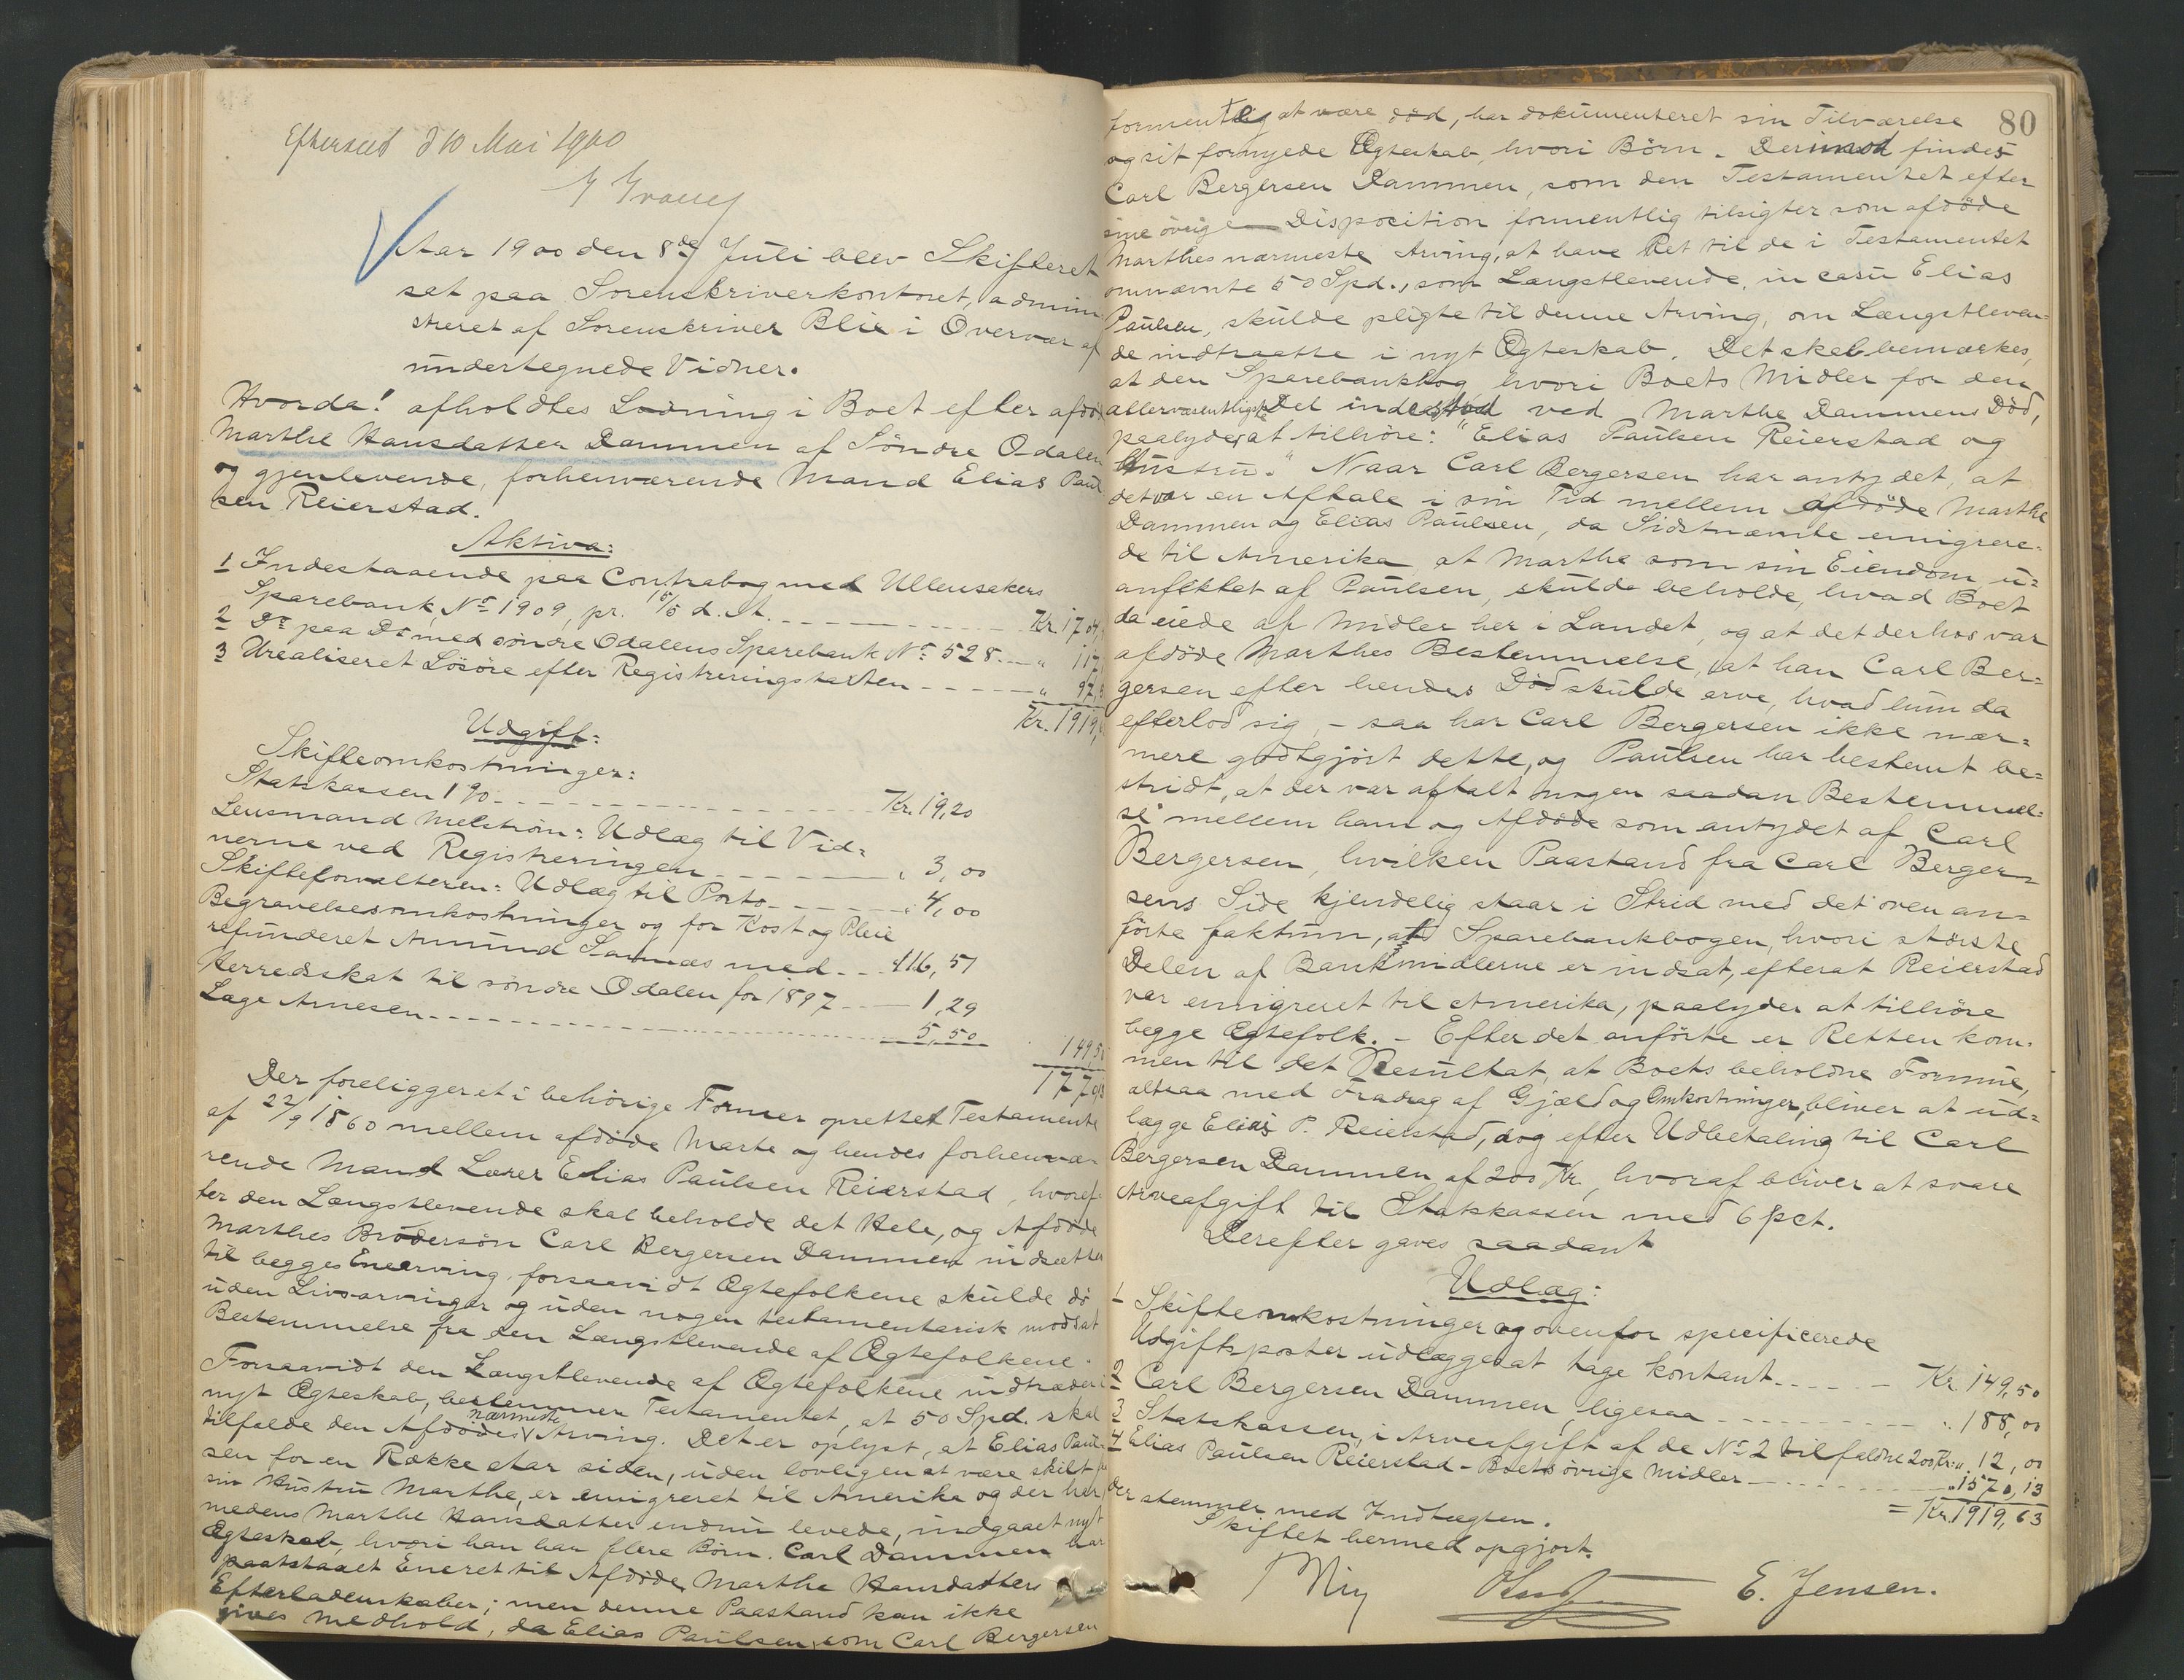 Efterseet d 10 Mai 1900
Aar 1900 den 8de Juli blev Skifteret
sat paa Sorenskriverkontoret, admini
streret af Sorenskriver Blix i Overvær af
undertegnede Vidner.
Hvorda! afholdtes Lodning i Boet efter afdöde
Marthe Hansdatter Dammen af Söndre Odalen
og gjenlevende, forhenværende Mand Elias Paul
sen Reierstad.
Aktiva:
1 Indestaaende paa Contrabog med Ullensakers
Sparebank, No 1909, pr. 15/5 d. A. Kr. 1704,
2 Do paa Do med söndre Odalens Sparebank No 528. " 117,
3 Urealiseret Lösöre efter Registreringstaxten " 97,
Kr. 1919,
Udgift:
Skifteomkostninger:
Statskassen 1 % Kr. 19,20
Lensmand Melström: Udlæg til Vid=
nerne ved Registreringen " 3,00
Skifteforvalteren: Udlæg til Porto " 4,00
Begravelsesomkostninger og for Kost og Pleie
refunderet Amund Sannæs med 116,51
Herredskat til söndre Odalen for 1897 1,29
Læge Arnesen 5,50
149,50
1770,13
Der foreligger et i behörige Former oprettet Testamente
af 22/9 1860 mellem afdöde Marte og hendes forhenvæ-
rende Mand Lærer Elias Paulsen Reierstad, hvoref=
ter den Længstlevende skal beholde det Hele, og Afdöde
Marthes Brodersön Carl Bergersen Dammen indsættes
til begges Enearving, forsaavidt Ægtefolkene skulde dö
uden Livsarvinger og uden nogen testamentarisk modsat
Bestemmelse fra den Længstlevende af Ægtefolkene.
Forsaavidt den Længstlevende af Ægtefolkene indtræder i
nyt Ægteskab, bestemmer Testamentet, at 50 Spd. skal
tilfalde den Afdödes nærmeste Arving. Det er oplyst, at Elias Paul=
sen for en Række Aar siden, uden lovligen at være skilt fra
sin Hustru Marthe, er emigreret til Amerika og der har,
medens Marthe Hansdatter endnu levede, indgaaet nyt
Ægteskab, hvori han har flere Börn. Carl Dammen har
paastaaet Eneret til Afdöde Marthe Hansdatters
Efterladenskaber; men denne Paastand kan ikke
gives Medhold, da Elias Paulsen, som Carl Bergersen
80
formentlig at være död, har dokumenteret sin Tilværelse
og sit fornyede Ægteskab, hvori Börn. Derimod findes
Carl Bergersen Dammen, som den Testamentet efter
sine övrige Disposition formentlig tilsigter som afdöde
Marthes nærmeste Arving, at have Ret til de i Testamentet
omnævnte 50 Spd., som Længstlevende, in casu Elias
Paulsen, skulde pligte til denne Arving, om Længstleven=
de indtraatte i nyt Ægteskab. Det skal bemærkes,
at den Sparebankbog hvori Boets Midler for den
allervæsentligste Del indestod ved Marthe Dammens Död,
paalyder at tilhöre: "Elias Paulsen Reierstad og
Hustru." Naar Carl Bergersen har antydet, at
det var en Aftale i sin Tid mellem Afdöde Marthe
Dammen og Elias Paulsen, da Sidstnævnte emigrere=
de til Amerika at Marthe som sin Eiendom, u=
anfektet af Paulsen, skulde beholde, hvad Boet
da eiede af Midler her i Landet, og at det derhos var
afdöde Marthes Bestemmelse, at han Carl Ber=
gersen efter hendes Död skulde arve, hvad hun da
efterlod sig, – saa har Carl Bergersen ikke nær=
mere godtgjort dette, og Paulsen har bestemt be=
stridt, at der var aftalt nogen saadan Bestemmel=
se mellem ham og Afdöde som antydet af Carl
Bergersen, hvilken Paastand fra Carl Berger=
sens Side kjendelig staar i Strid med det oven an=
förte faktum, at Sparebankbogen, hvori störste
Delen af Bankmidlerne er indsat, efterat Reierstad
var emigreret til Amerika, paalyder at tilhöre
begge Ægtefolk. – Efter det anförte er Retten kom=
men til det Resultat, at Boets beholdne Formue,
altsaa med Fradrag af Gjæld og Omkostninger, bliver at ud=
lægge Elias P. Reierstad, dog efter Udbetaling til Carl
Bergersen Dammen af 200 Kr., hvoraf bliver at svare
Arveafgift til Statskassen med 6 pct.
Derefter gaves saadant
Udlæg:
1 Skifteomkostninger og ovenfor specificerede
Udgiftsposter udlægges at tage kontant Kr. 149,50
2 Carl Bergersen Dammen ligesaa " 188,00
3 Statskassen, i Arveafgift af de No 2 tilfaldne 200 Kr. " 12,00
4 Elias Paulsen Reierstad - Boets övrige Midler " 1570,13
= Kr. 1919,63
der stemmer med Indtægten.
Skiftet hermed opgjort.
E. Jensen.